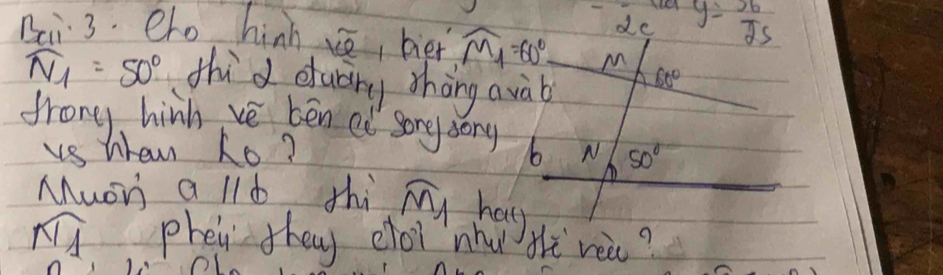 Bài 3. Cho hình vẽ, biết M̂1 = 60°
N̂1 = 50° thì 2 đường thẳng a và b
trong hình vẽ bên có song song
vs nhau ko?
Muốn a // b thì M̂1 hay
N̂1 phải thay đổi như thế nào?
M
60°
b N 50°
y = 36